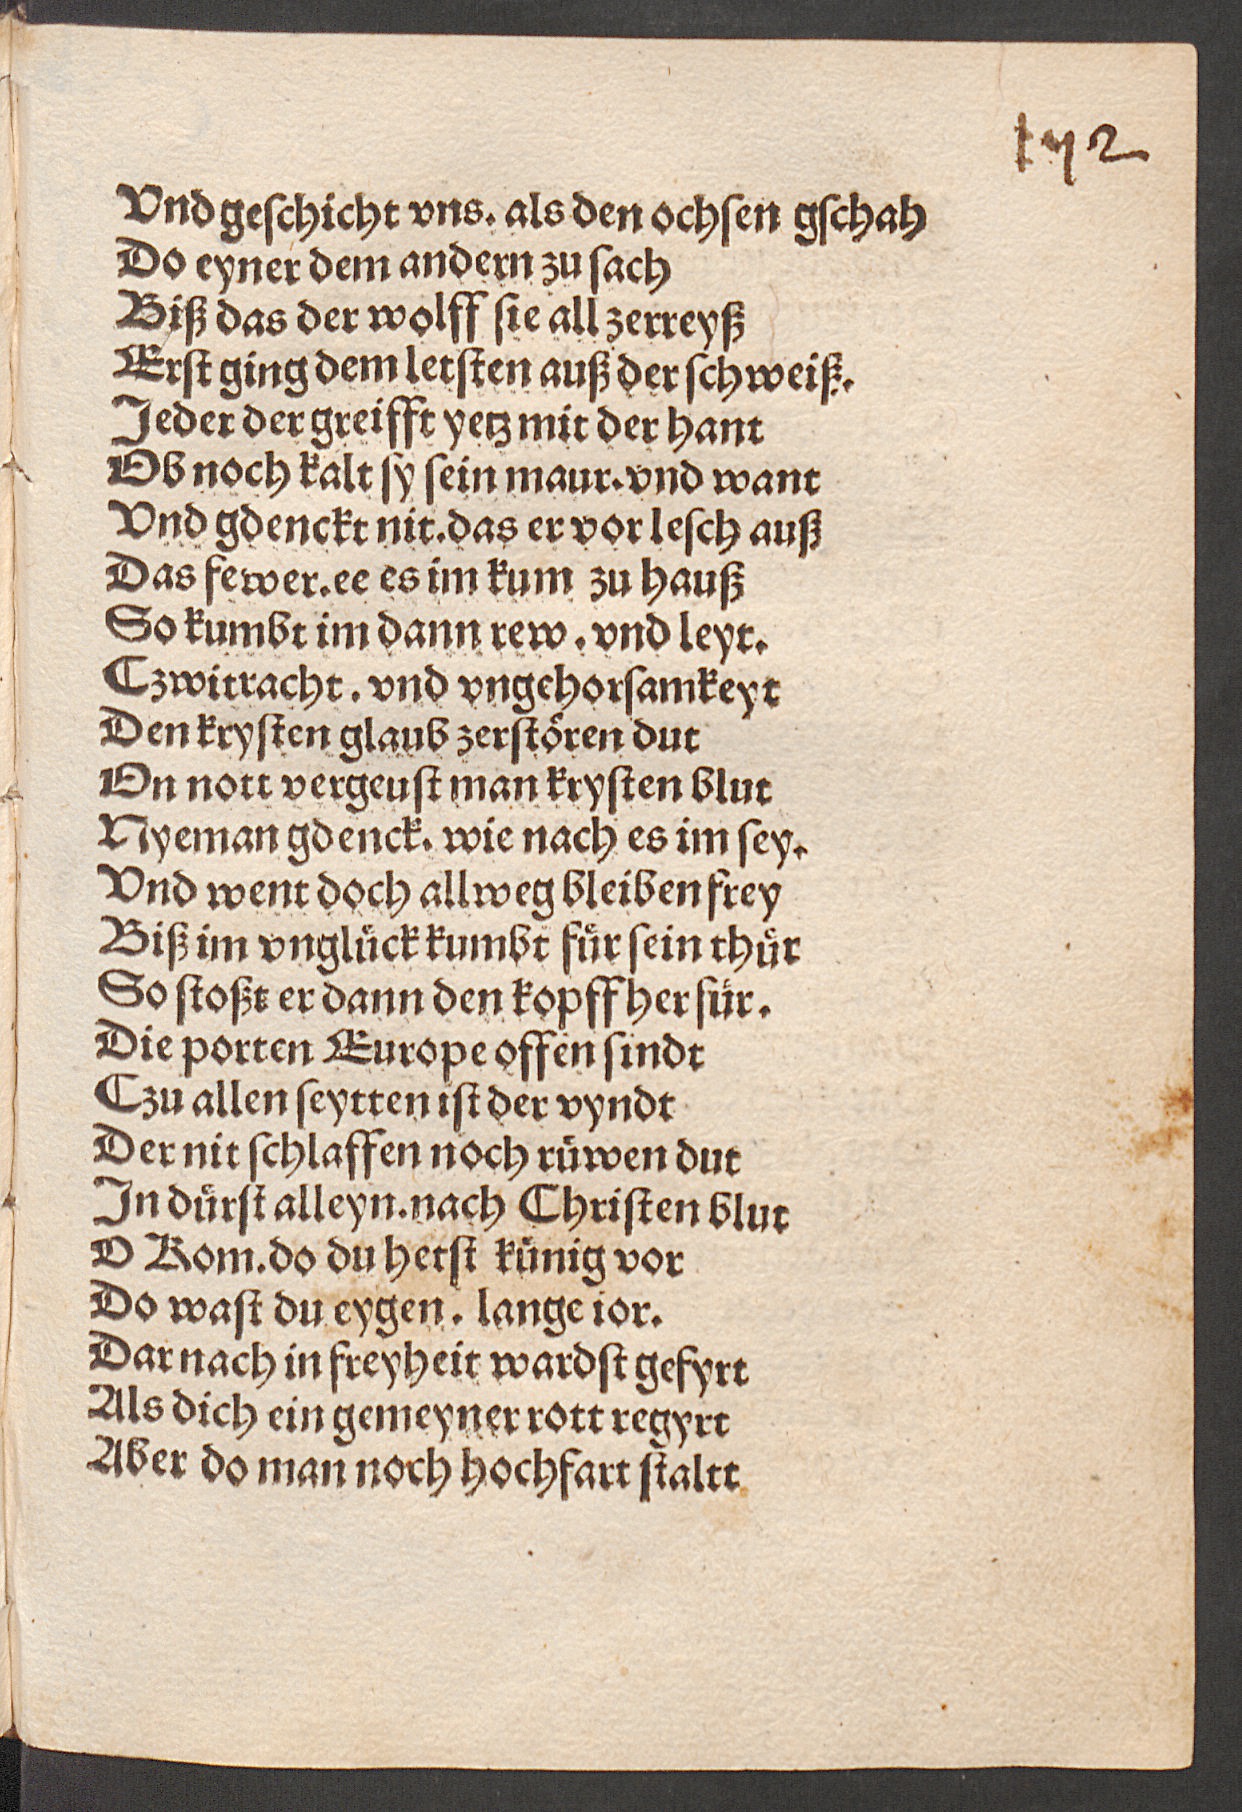 172
Vnd geſchicht vns. als den ochſen gſchah
Do eyner dem andern zu ſach
Biß das der wolff ſie all zerreyß
Erſt ging dem letſten auß der ſchweiß.
Jeder der greifft yetz mit der hant
Ob noch kalt ſy ſein maur. vnd want
Vnd gdenckt nit. das er vor leſch auß
Das fewer. ee es im kum zu hauß
So kumbt im dann rew. vnd leyt.
Czwitracht. vnd vngehorſamkeyt
Den kryſten glaub zerſtören dut
On nott vergeuſt man kryſten blut
Nyeman gdenck. wie nach es im ſey.
Vnd went doch allweg bleiben frey
Biß im vnglück kumbt für ſein thür
So ſtoßt er dann den kopff her für.
Die porten Europe offen ſindt
Czu allen ſeytten iſt der vyndt
Der nit ſchlaffen noch rüwen dut
In dürſt alleyn. nach Chriſten blut
O Rom. do du hetſt künig vor
Do waſt du eygen. lange ior.
Dar nach in freyheit wardſt gefyrt
Als dich ein gemeyner rott regyrt
Aber do man noch hochfart ſtaltt